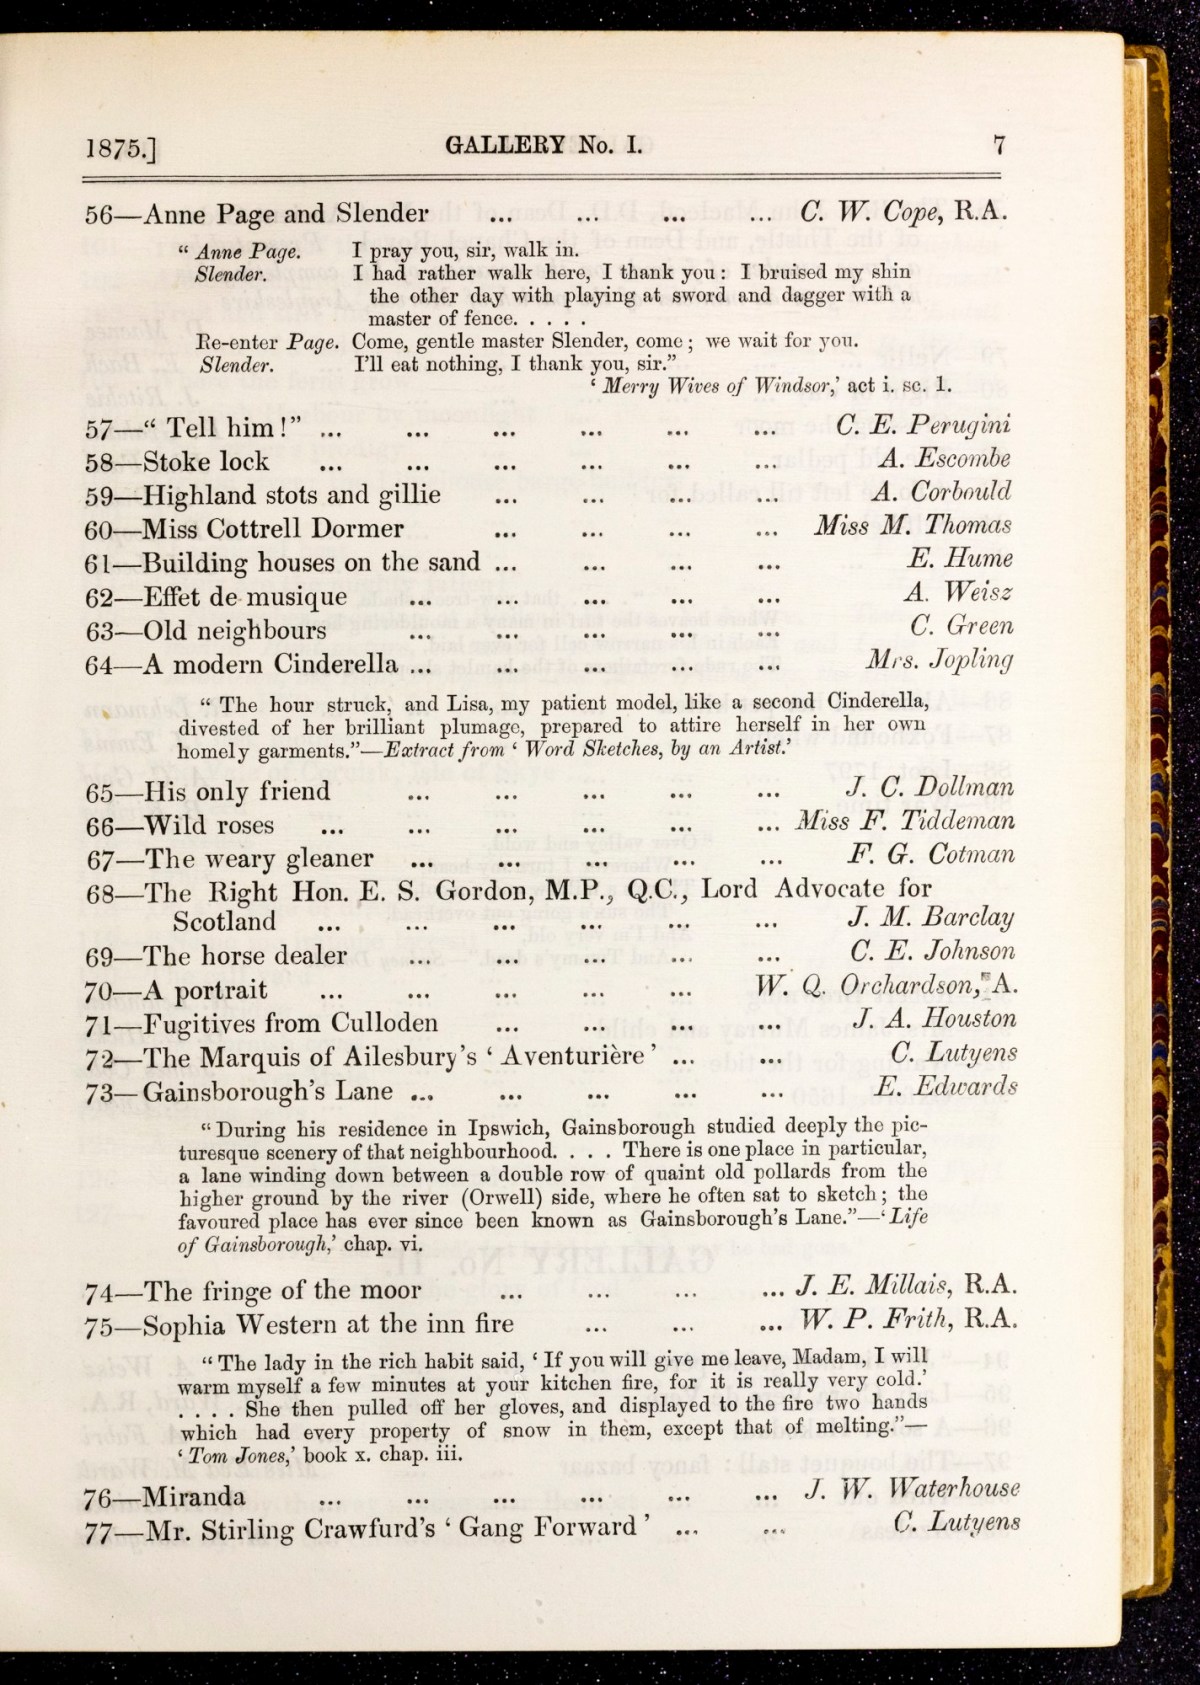 1875.] GALLERY No. I. 7
56—Anne Page and Slender ... ... ... ... C. W. Cope, R.A.
“ Anne Page. I pray you, sir, walk in.
Slender. I had rather walk here, I thank you: I bruised my shin
the other day with playing at sword and dagger with a
master of fence. . . . .
Re-enter Page. Come, gentle master Slender, come; we wait for you.
Slender. I’ll eat nothing, I thank you, sir.”
‘ Merry Wives of Windsor,’ act i. sc. 1.
57—“ Tell him!” ... ... ... ... ... ... C. E. Perugini
58—Stoke lock ... ... ... ... ... ... A. Escombe
59—Highland stots and gillie ... ... ... ... A. Corbould
60—Miss Cottrell Dormer ... ... ... ... Miss M. Thomas
61—Building houses on the sand ... ... ... ... E. Hume
62—Effet de musique ... ... ... ... ... A. Weisz
63—Old neighbours ... ... ... ... ... C. Green
64—A modern Cinderella ... ... ... ... ... Mrs. Jopling
“ The hour struck, and Lisa, my patient model, like a second Cinderella,
divested of her brilliant plumage, prepared to attire herself in her own
homely garments.”—Extract from ‘ Word Sketches, by an Artist.’
65—His only friend ... ... ... ... ... J. C. Dollman
66—Wild roses ... ... ... ... ... ... Miss F. Tiddeman
67—The weary gleaner ... ... ... ... ... F. G. Cotman
68—The Right Hon. E. S. Gordon, M.P., Q.C., Lord Advocate for
Scotland ... ... ... ... ... ... J. M. Barclay
69—The horse dealer ... ... ... ... ... C. E. Johnson
70—A portrait ... ... ... ... ... W. Q. Orchardson, A.
71—Fugitives from Culloden ... ... ... ... J. A. Houston
72—The Marquis of Ailesbury’s ‘ Aventurière ’ ... ... C. Lutyens
73—Gainsborough’s Lane ... ... ... ... ... E. Edwards
“ During his residence in Ipswich, Gainsborough studied deeply the pic-
turesque scenery of that neighbourhood. . . . There is one place in particular,
a lane winding down between a double row of quaint old pollards from the
higher ground by the river (Orwell) side, where he often sat to sketch; the
favoured place has ever since been known as Gainsborough’s Lane.”—‘ Life
of Gainsborough,’ chap. vi.
74—The fringe of the moor ... ... ... ... J. E. Millais, R.A.
75—Sophia Western at the inn fire ... ... ... W. P. Frith, R.A.
“ The lady in the rich habit said, ‘ If you will give me leave, Madam, I will
warm myself a few minutes at your kitchen fire, for it is really very cold.’
. . . . She then pulled off her gloves, and displayed to the fire two hands
which had every property of snow in them, except that of melting.”—
‘ Tom Jones,’ book x. chap. iii.
76—Miranda ... ... ... ... ... ... J. W. Waterhouse
77—Mr. Stirling Crawfurd’s ‘ Gang Forward ’ ... ... C. Lutyens